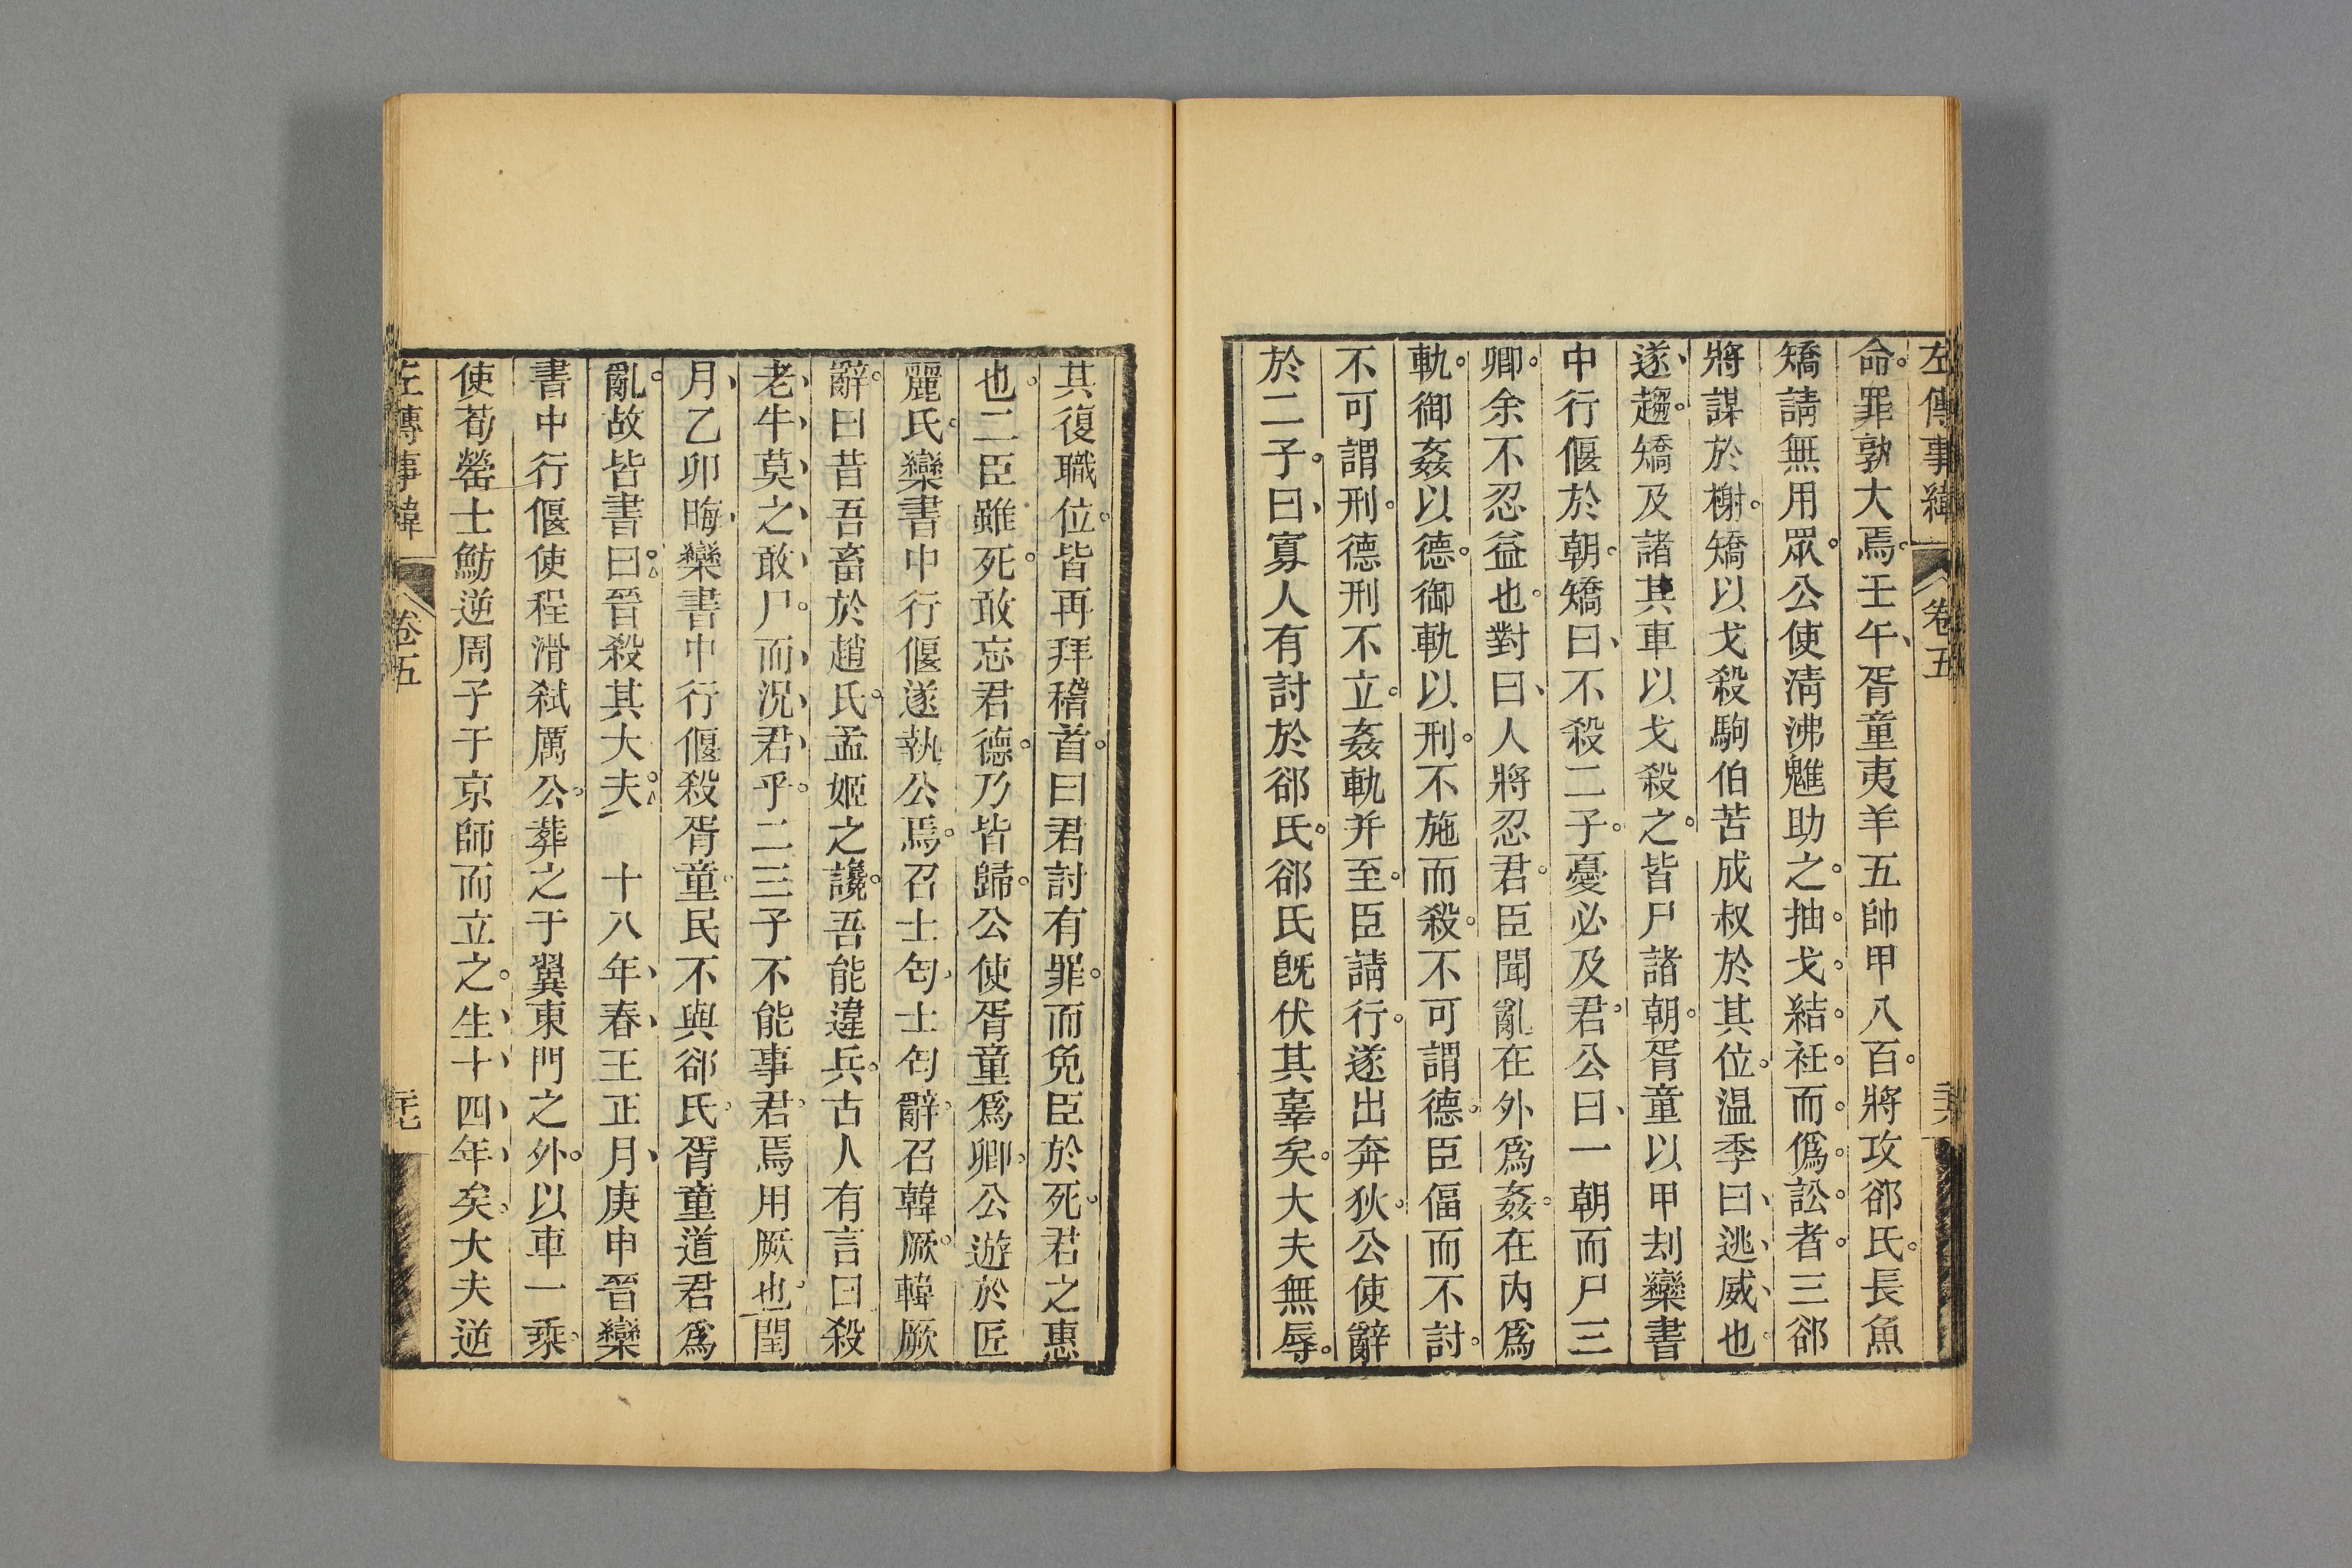 左傳事緯 卷五
命罪孰大焉壬午胥童夷羊五帥甲八百將攻郤氏長魚
矯請無用眾公使淸沸魋助之抽戈結衽而僞訟者三郤
將謀於榭矯以戈殺駒伯苦成叔於其位温季曰逃威也
遂趨矯及諸其車以戈殺之皆尸諸朝胥童以甲刦欒書
中行偃於朝矯曰不殺二子憂必及君公曰一朝而尸三
卿余不忍益也對曰人將忍君臣聞亂在外爲姦在內爲
軌御姦以德御軌以刑不施而殺不可謂德臣偪而不討
不可謂刑德刑不立姦軌并至臣請行遂出奔狄公使辭
於二子曰寡人有討於郤氏郤氏旣伏其辜矣大夫無辱
其復職位皆再拜稽首曰君討有罪而免臣於死君之惠
也二臣雖死敢忘君德乃皆歸公使胥童爲卿公遊於匠
麗氏欒書中行偃遂執公焉召士匄士匄辭召韓厥韓厥
辭曰昔吾畜於趙氏孟姬之讒吾能違兵古人有言曰殺
老牛莫之敢尸而況君乎二三子不能事君焉用厥也閏
月乙卯晦欒書中行偃殺胥童民不與郤氏胥童道君爲
亂故皆書曰晉殺其大夫 十八年春王正月庚申晉欒
書中行偃使程滑弒厲公葬之于翼東門之外以車一乘
使荀罃士魴逆周子于京師而立之生十四年矣大夫逆
左傳事緯 卷五